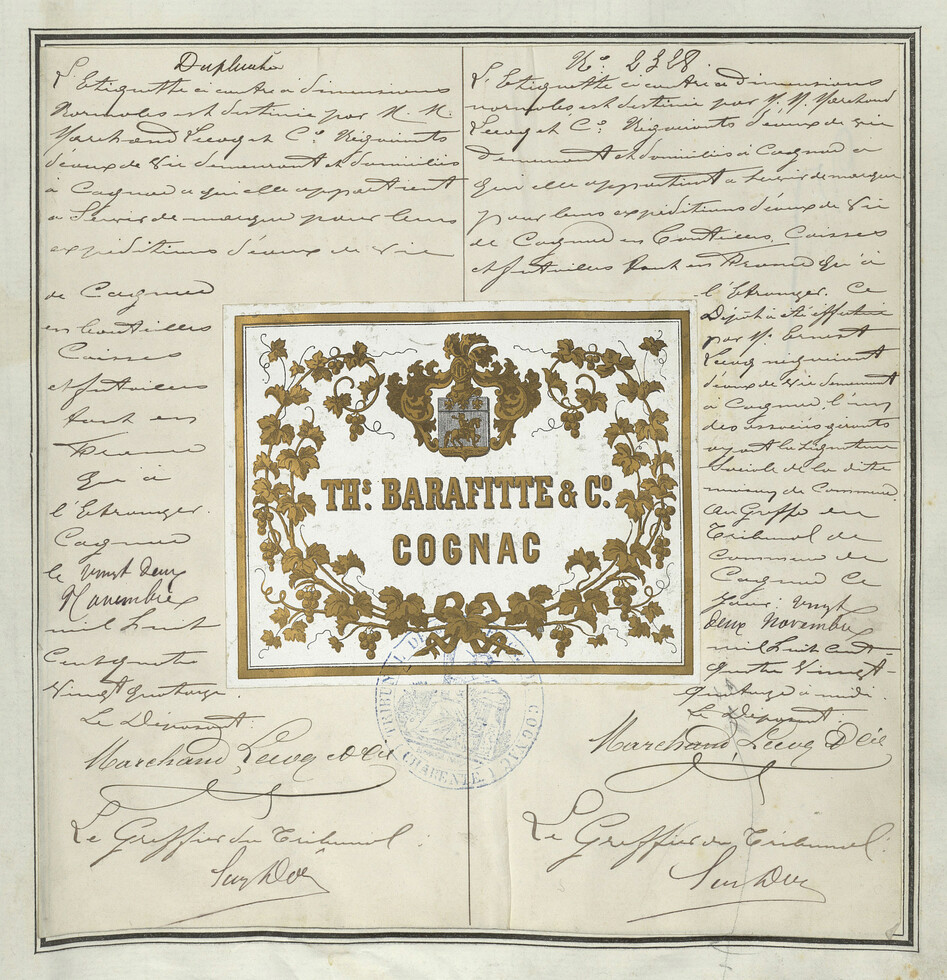 Duplicata
L'Etiquette ci contre à dimensions
Normales est destinée par M. M.
Marchand Lecoq et Cie Négociants
d'eaux de Vie demeurant et domiciliés
à Cognac à qui elle appartient
à Servir de marque pour leurs
expéditions d'eaux de Vie
de Cognac
en bouteilles
Caisses
et futailles
tant en
France
qu'à
l'Etranger.
Cognac
le vingt deux
Novembre
mil huit
Cent quatre
Vingt quatorze.
Le Déposant:
Marchand, Lecoq & Cie
Le Greffier du Tribunal.
No. 2328.
L'Etiquette ci contre à Dimensions
normales est destinée par M. M. Marchand
Lecoq et Co. Négociants d'eaux de vie
Demeurant et domiciliés à Cognac à
qui elle appartient à servir de marque
pour leurs expéditions d'eaux de Vie
de Cognac en bouteilles, Caisses
et futailles tant en France qu'à
l'Etranger. Ce
Dépôt a été effectué
par M. Ernest
Lecoq négociant
d'eaux de Vie demeurant
à Cognac, l'un
des associés gérants
ayant la signature
sociale de la dite
maison de Commerce
au Greffe du
Tribunal de
Commerce de
Cognac ce
jour vingt
deux Novembre
mil huit Cent
quatre Vingt
quatorze à midi
Le Déposant:
Marchand, Lecoq & Cie
Le Greffier du Tribunal.
THS. BARAFITTE & CO.
COGNAC
TRIBUNAL DE COGNAC
CHARENTE